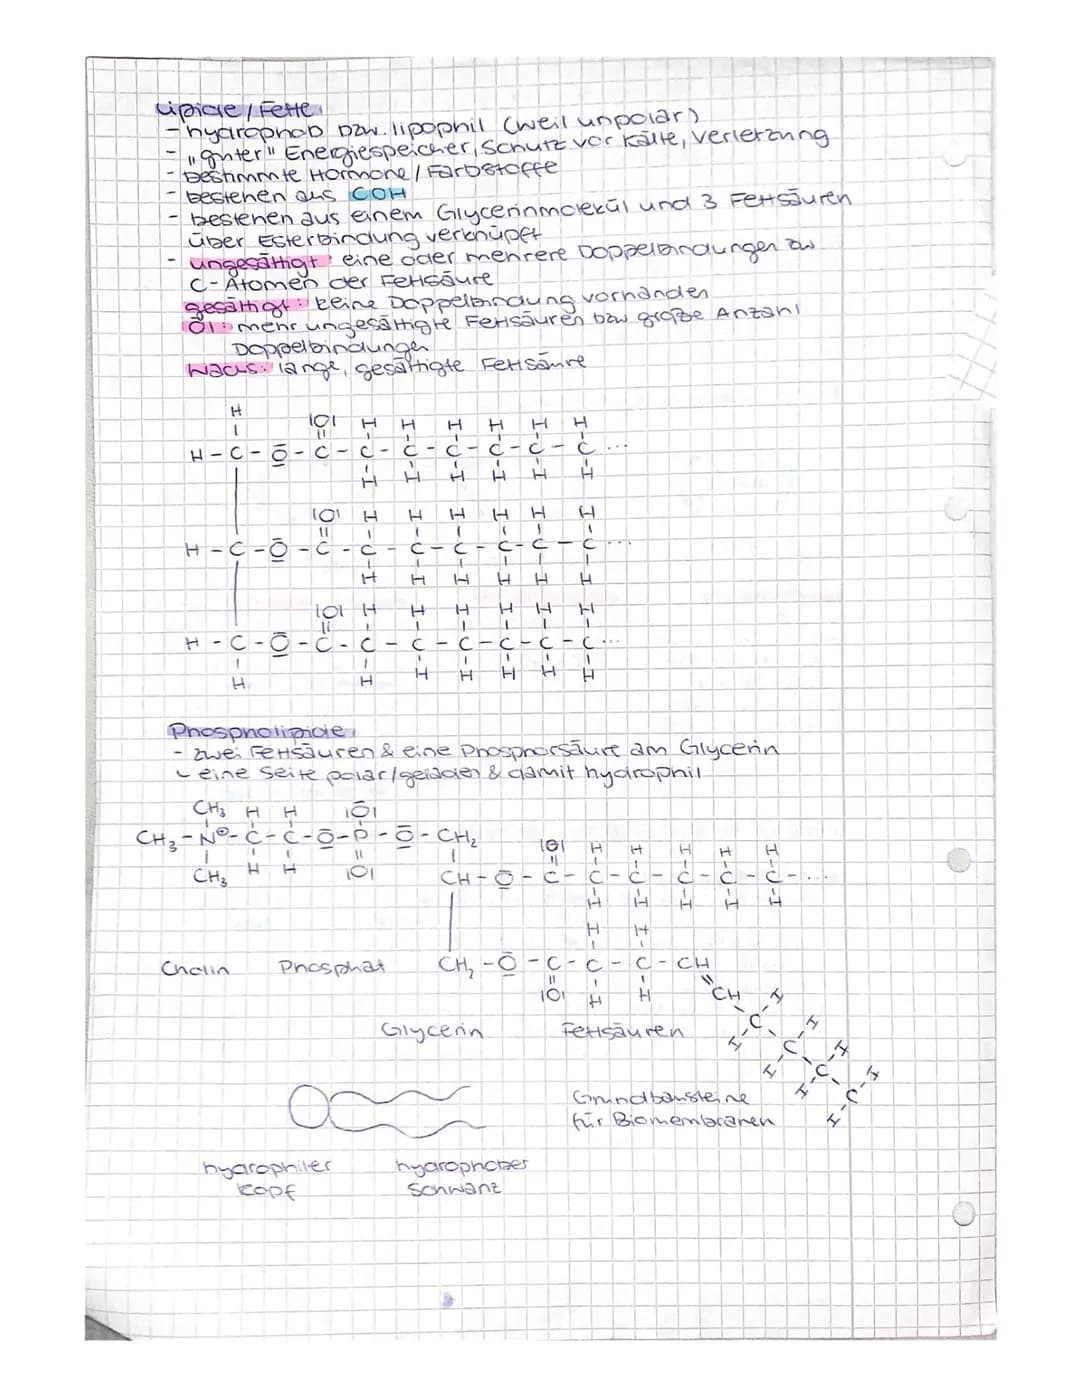 Lipide / Fette
- hydrophob bzw. lipophil (weil unpolar)
- "guter" Energiespeicher, Schutz vor Kälte, Verletzung
- bestimmte Hormone / Farbstoffe
- bestehen aus COH
- bestehen aus einem Glycerinmolekül und 3 Fettsäuren
über Esterbindung verknüpft
- ungesättigt: eine oder mehrere Doppelbindungen zw.
C-Atomen der Fettsäure
gesättigt: keine Doppelbindung vorhanden
Öl: mehr ungesättigte Fettsäuren bzw große Anzahl
Doppelbindungen
Wachs: lange, gesättigte Fettsäure
H
|O| H H H H H H
H-C-O-C-C-C-C-C-C-C...
H H H H H H
|O| H H H H H H
H-C-O-C-C-C-C-C-C-C...
H H H H H H
|O| H H H H H H
H-C-O-C-C-C-C-C-C-C...
H H H H H H H
Phospholipide
- zwei Fettsäuren & eine Phosphorsäure am Glycerin
- eine Seite polar/geladen & damit hydrophil
CH₃ H H |O|
CH₃-N⊕-C-C-O-P-O-CH₂
CH₃ H H |O|
|O| H H H H H
CH-O-C-C-C-C-C-C-...
H H H H H
H H
CH₂-O-C-C-C-CH
|O| H H
CH H
C H
H C H
H C H
H C
H
Cholin Phosphat
Glycerin Fettsäuren
Grundbausteine
für Biomembranen
hydrophiler hydrophober
Kopf Schwanz